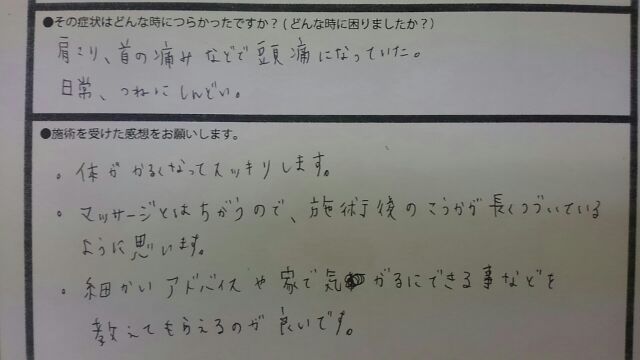 ●その症状はどんな時につらかったですか？(どんな時に困りましたか？)
肩こり、首の痛みなどで頭痛になっていた。
日常、つねにしんどい。
●施術を受けた感想をお願いします。
。体がかるくなってスッキリします。
。マッサージとはちがうので、施術後のこうかが長くつづいている
ように思います。
。細かいアドバイスや家で気がるにできる事などを
教えてもらえるのが良いです。